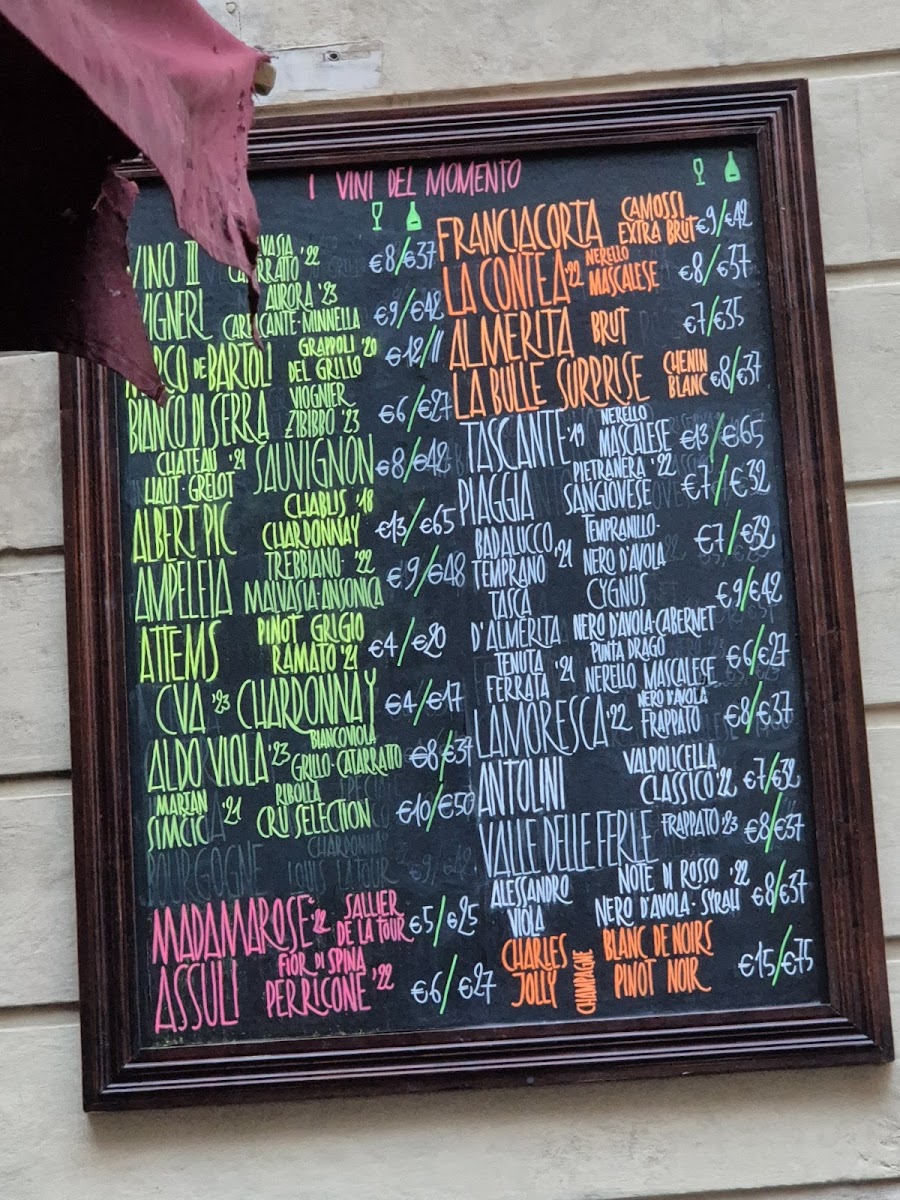 I VINI DEL MOMENTO
VINO
CATARRATTO '22
€8/€37
VIGNERI
AURORA '23
CARICANTE·MINNELLA
€9/€42
DE BARTOLI
GRAPPOLI '20
DEL GRILLO
€12/
BIANCO DI SERRA
VIOGNIER
ZIBIBBO '23
€6/€27
CHATEAU '21
HAUT-GRELOT
SAUVIGNON
€8/€42
ALBERT PIC
CHABLIS '18
CHARDONNAY
€13/€65
AMPELEIA
TREBBIANO· '22
MALVASIA·ANSONICA
€9/€48
ATTEMS
PINOT GRIGIO
RAMATO '21
€4/€20
CVA '23 CHARDONNAY
€4/€17
ALDO VIOLA '23
BIANCOVIOLA
GRILLO·CATARRATTO
€8/€37
MARIAN
SIMCIC '21
RIBOLLA
CRU SELECTION
€10/€50
BOURGOGNE
CHARDONNAY
LOUIS LATOUR
€9/€42
MADAMAROSE '22
SALLIER
DE LA TOUR
€5/€25
ASSULI
FIOR DI SPINA
PERRICONE '22
€6/€27
FRANCIACORTA
CAMOSSI
EXTRA BRUT
€9/€42
LA CONTEA '22
NERELLO
MASCALESE
€8/€37
ALMERITA BRUT
€7/€35
LA BULLE SURPRISE
CHENIN
BLANC
€8/€37
TASCANTE '19
NERELLO
MASCALESE
€13/€65
PIAGGIA
PIETRANERA '22
SANGIOVESE
€7/€32
BADALUCCO
TEMPRANO '21
TEMPRANILLO·
NERO D'AVOLA
€7/€32
TASCA
D'ALMERITA
CYGNUS
NERO D'AVOLA·CABERNET
€9/€42
TENUTA
FERRATA '21
PUNTA DRAGO
NERELLO MASCALESE
€6/€27
LAMORESCA '22
NERO D'AVOLA
FRAPPATO
€8/€37
ANTOLINI
VALPOLICELLA
CLASSICO '22
€7/€32
VALLE DELLE FERLE
FRAPPATO '23
€8/€37
ALESSANDRO
VIOLA
NOTE DI ROSSO '22
NERO D'AVOLA·SYRAH
€8/€37
CHARLES
JOLLY
CHAMPAGNE
BLANC DE NOIRS
PINOT NOIR
€15/€75